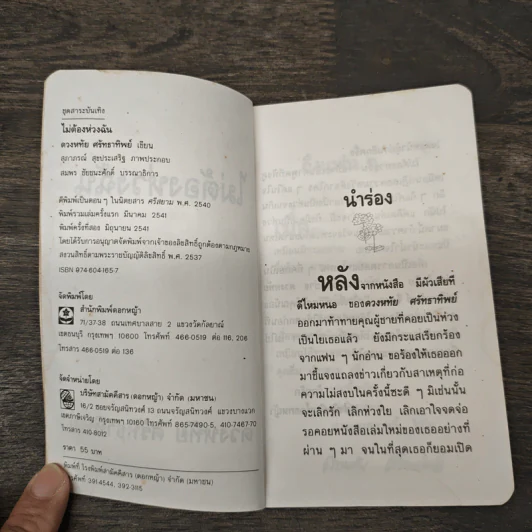 ชุดสาระบันเทิง
ไม่ต้องห่วงฉัน
ดวงหทัย ศรัทธาทิพย์ เขียน
สุภาภรณ์ สุขประเสริฐ ภาพประกอบ
สมพร ชัยชนะศักดิ์ บรรณาธิการ
ตีพิมพ์เป็นตอน ๆ ในนิตยสาร ศรีสยาม พ.ศ. 2540
พิมพ์รวมเล่มครั้งแรก มีนาคม 2541
พิมพ์ครั้งที่สอง มิถุนายน 2541
โดยได้รับการอนุญาตจัดพิมพ์จากเจ้าของลิขสิทธิ์ถูกต้องตามกฎหมาย
สงวนลิขสิทธิ์ตามพระราชบัญญัติลิขสิทธิ์ พ.ศ. 2537
ISBN 974-604-165-7
จัดพิมพ์โดย
สำนักพิมพ์ดอกหญ้า
71/37-38 ถนนเทศบาลสาย 2 แขวงวัดกัลยาณ์
เขตธนบุรี กรุงเทพฯ 10600 โทรศัพท์ 466-0519 ต่อ 116, 206
โทรสาร 466-0519 ต่อ 136
จัดจำหน่ายโดย
บริษัทสามัคคีสาร (ดอกหญ้า) จำกัด (มหาชน)
16/2 ซอยจรัญสนิทวงศ์ 13 ถนนจรัญสนิทวงศ์ แขวงบางแวก
เขตภาษีเจริญ กรุงเทพฯ 10160 โทรศัพท์ 865-7490-5, 410-7467-70
โทรสาร 410-8012
ราคา 55 บาท
พิมพ์ที่ โรงพิมพ์สามัคคีสาร (ดอกหญ้า) จำกัด (มหาชน)
โทรศัพท์ 391-4544, 392-3115
นำร่อง
หลังจากหนังสือ มีผัวเสียที
ดีไหมหนอ ของดวงหทัย ศรัทธาทิพย์
ออกมาท้าทายคุณผู้ชายที่คอยเป็นห่วง
เป็นใยเธอแล้ว ยังมีกระแสเรียกร้อง
จากแฟน ๆ นักอ่าน ขอร้องให้เธอออก
มาชี้แจงแถลงข่าวเกี่ยวกับสาเหตุที่ก่อ
ความไม่สงบในครั้งนี้ซะดี ๆ มิเช่นนั้น
จะเลิกรัก เลิกห่วงใย เลิกเอาใจจดจ่อ
รอคอยหนังสือเล่มใหม่ของเธออย่างที่
ผ่าน ๆ มา จนในที่สุดเธอก็ยอมเปิด